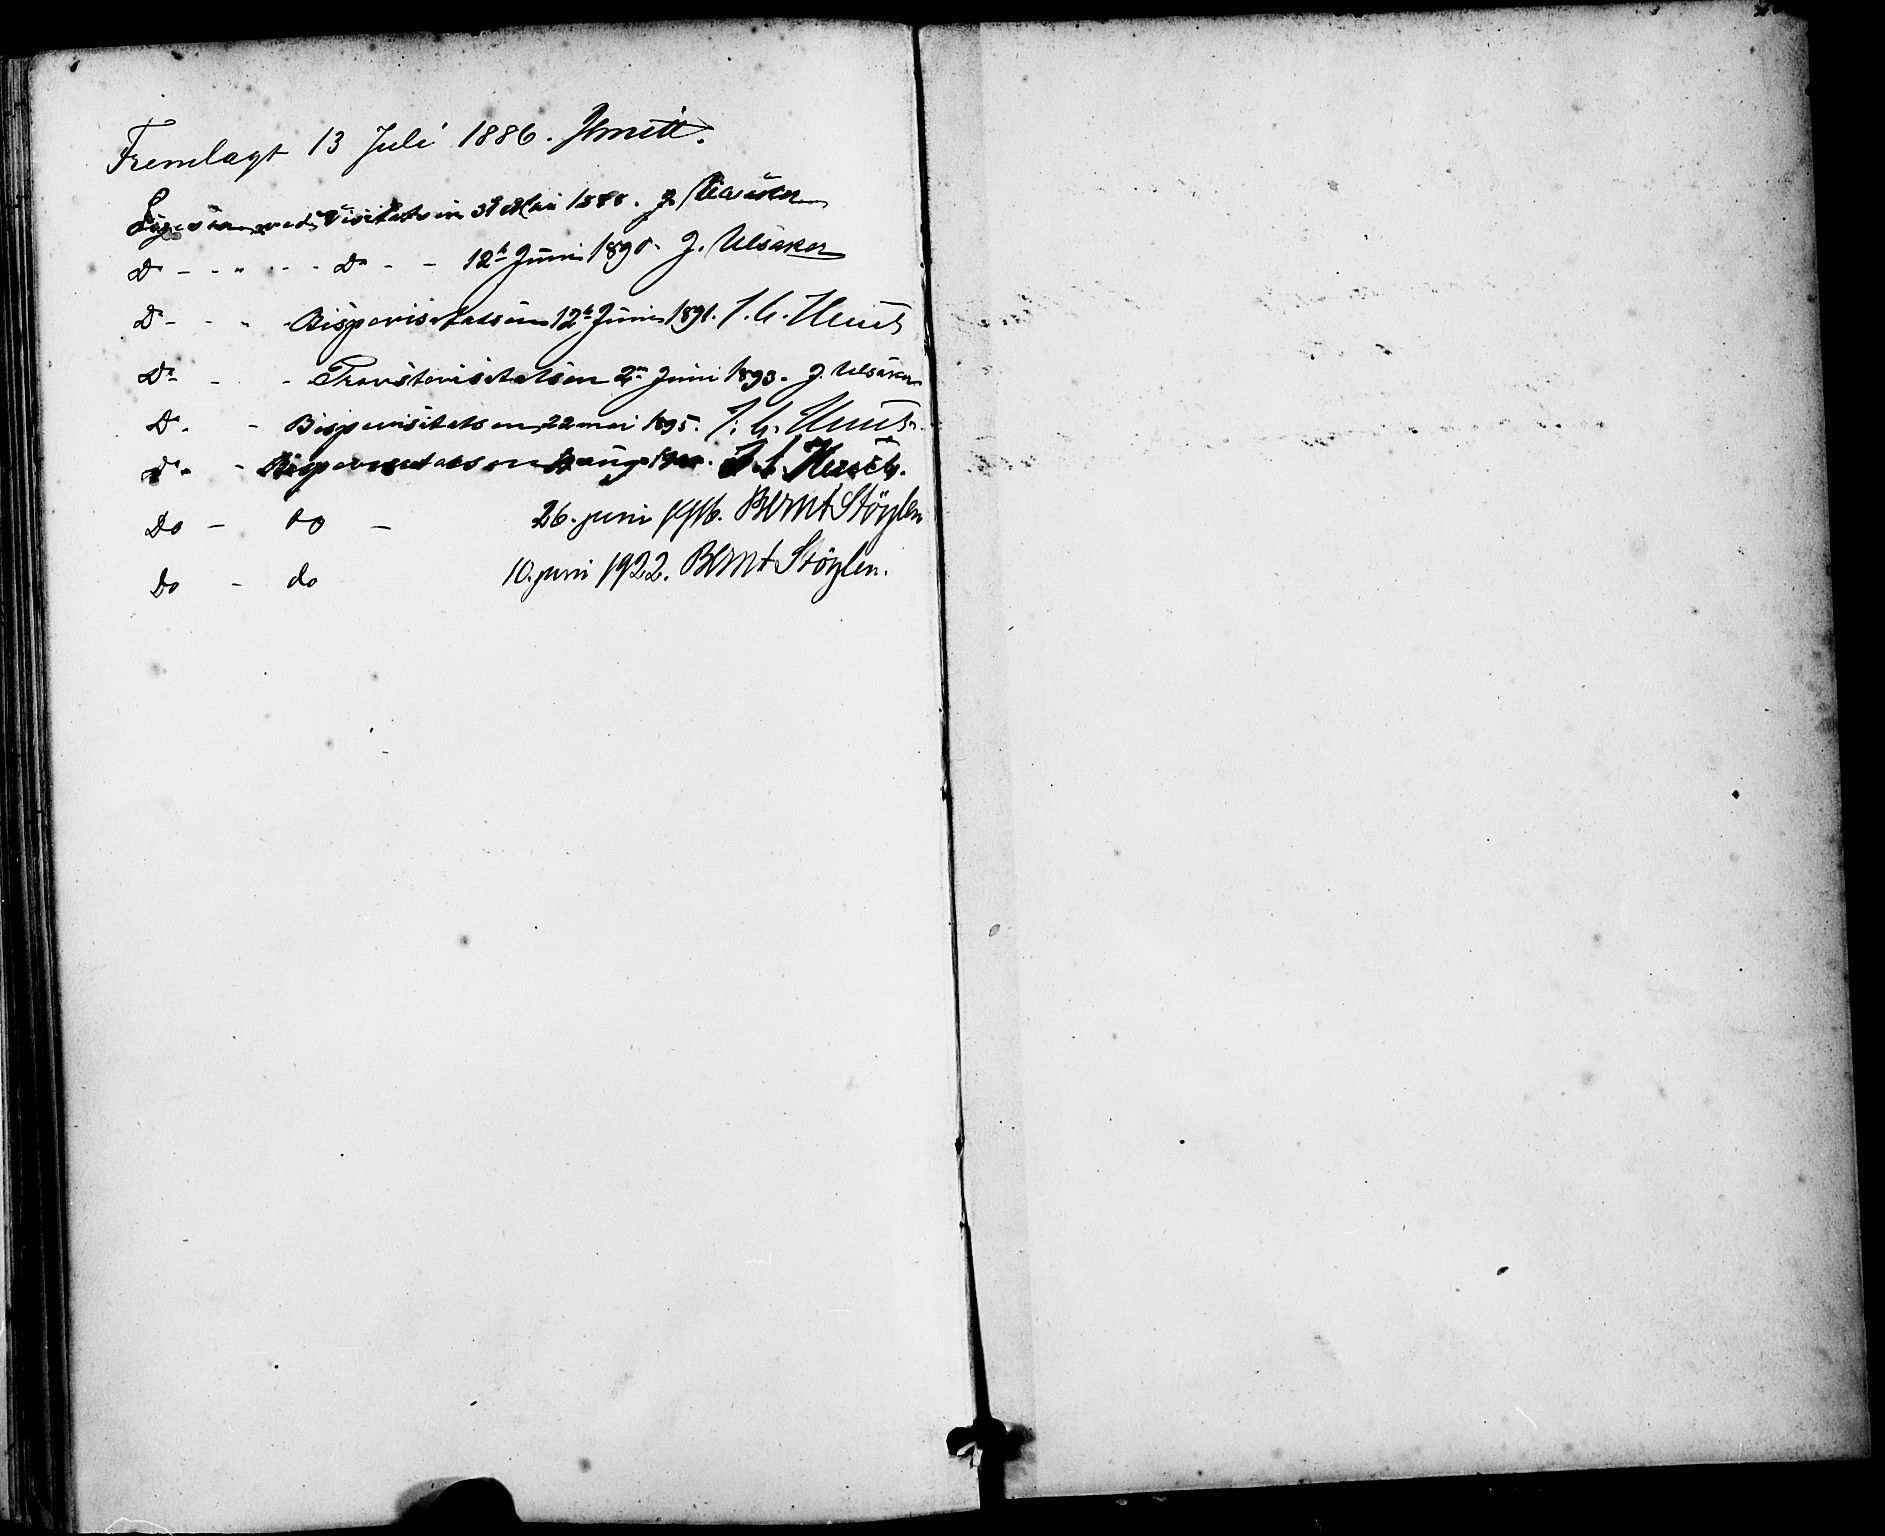 Fremlagt 13 Juli 1886.
Ligesaa ved Visitatsen 31 Mai 1888. J. Ulsaker
Do - - " - - - Do - - 12te Juni 1890. J. Ulsaker
Do - - " - Bispevisitatsen 12te Juni 1891. J. C. Heuch
Do - - - Provstevisitatsen 2den Juni 1893. J. Ulsaker
Do. - Bispevisitatsen 22 mai 1895. J. C. Heuch.
Do. - Bispevisitatsen aug J. C. Heuch.
Do - Do - 26. juni 1916. Bernt Støylen
Do - do 10. juni 1922. Bernt Støylen.